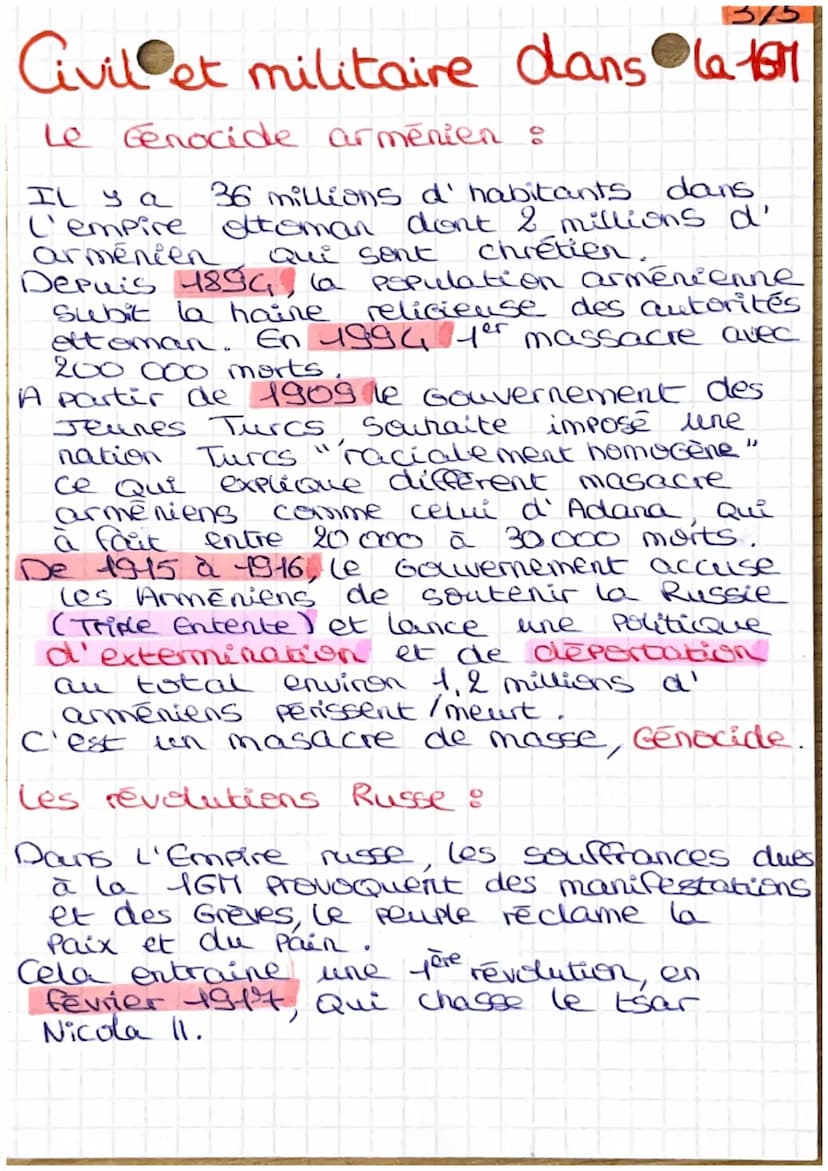 3/5
Civil et militaire dans la 1GM
Le Génocide arménien :
Il y a 36 millions d'habitants dans
l'empire ottoman dont 2 millions d'
arménien qui sont chrétien.
Depuis 1894, la population arménienne
subit la haine religieuse des autorités
ottoman. En 1994 1er massacre avec
200 000 morts.
A partir de 1909 le Gouvernement des
Jeunes Turcs souhaite imposé une
nation Turcs "racialement homogène"
ce qui explique différent masacre
arméniens comme celui d'Adana, qui
à fait entre 20 000 à 30 000 morts.
De 1915 à 1916, le Gouvernement accuse
les Arméniens de soutenir la Russie
(Triple Entente) et lance une politique
d'extermination et de déportation
au total environ 1,2 millions d'
arméniens périssent /meurt.
C'est un masacre de masse, Génocide.
Les révolutions Russe :
Dans l'Empire russe, les souffrances dues
à la 1GM provoquent des manifestations
et des Grèves, le peuple réclame la
Paix et du Pain.
Cela entraine une 1ère révolution, en
février 1917, qui chasse le tsar
Nicola II.